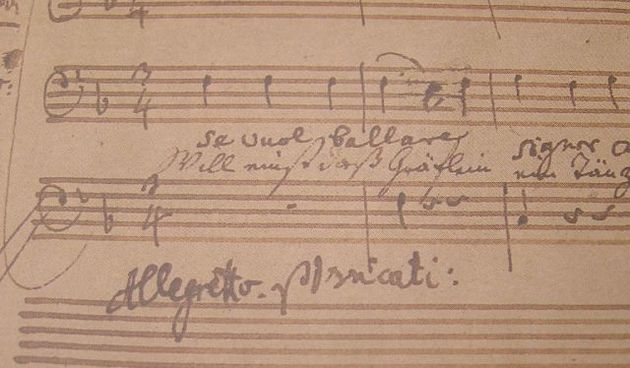 se vuol ballare signor
Will einst daß Gräflein ein Tänz
Allegretto. pizzicati: